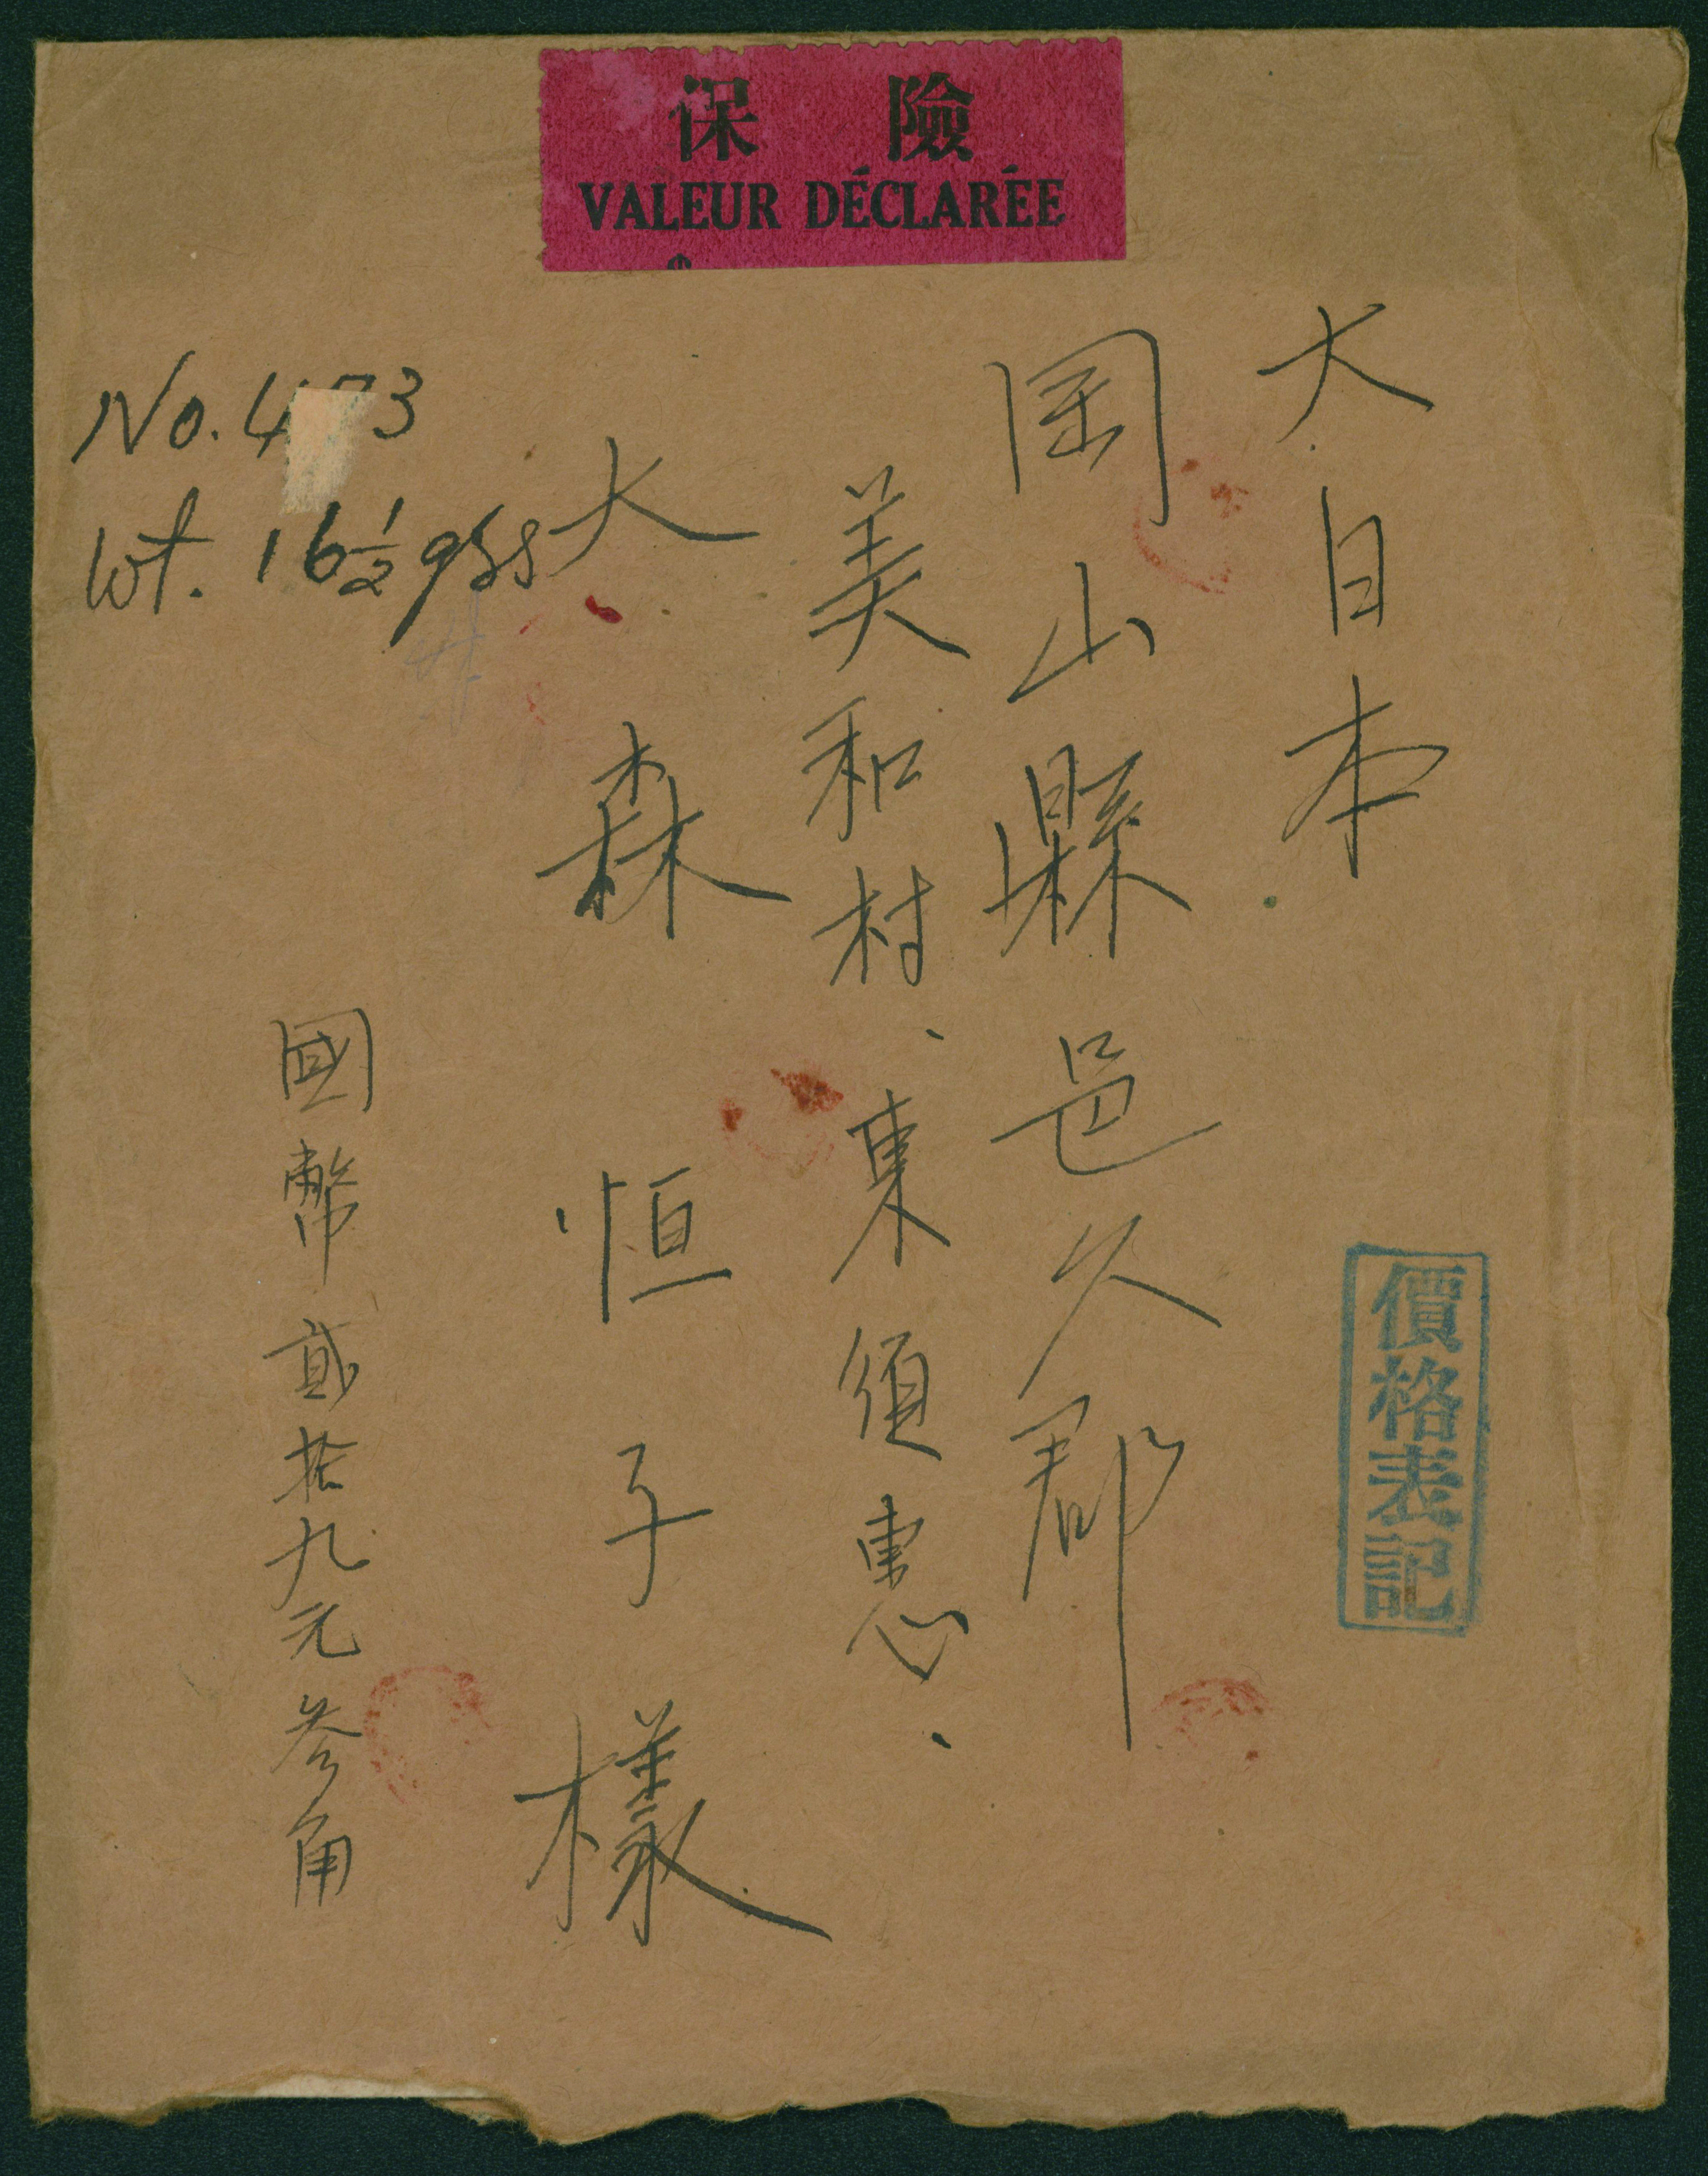 保險
VALEUR DÉCLARÉE
No. 4 3
Wt. 16½ grs
大日本
岡山縣邑久郡
美和村、東須恵、
大森恒子樣
國幣貳拾九元参角
價格表記